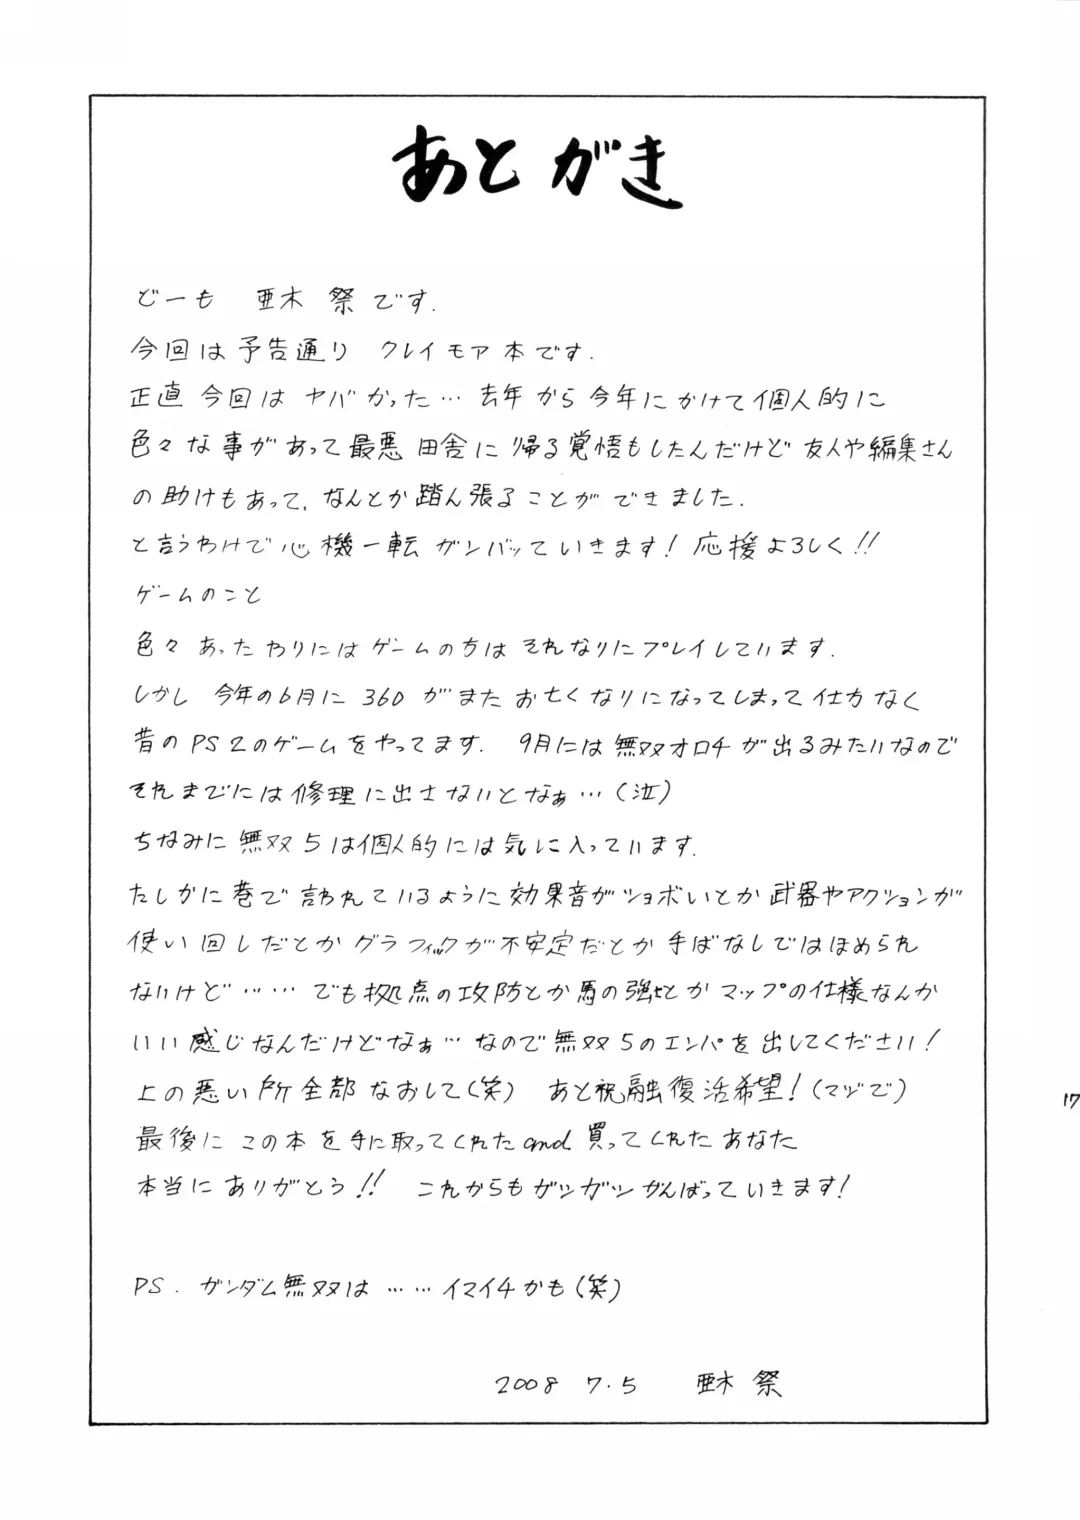 あとがき
どーも 亜木 祭です.
今回は予告通り クレイモア本です.
正直今回は ヤバかった… 去年から今年にかけて個人的に
色々な事があって最悪 田舎に帰る覚悟もしたんだけど 友人や編集さん
の助けもあって、なんとか踏ん張ることができました.
と言うわけで心機一転ガンバッていきます! 応援よろしく!!
ゲームのこと
色々あったわりにはゲームの方はそれなりにプレイしています.
しかし 今年の6月に 360 がまたお亡くなりになってしまって仕方なく
昔のPS2のゲームをやってます. 9月には無双オロチが出るみたいなので
それまでには修理に出さないとなぁ…(泣)
ちなみに無双5は個人的には気に入っています.
たしかに巷で言われているように効果音がショボいとか武器やアクションが
使い回しだとかグラフィックが不安定だとか手ばなしではほめられ
ないけど…… でも拠点の攻防とか馬の強さとかマップの仕様なんか
いい感じなんだけどなぁ…なので無双5のエンパを出してください!
上の悪い所全部なおして(笑) あと祝融復活希望!(マヅで)
最後にこの本を手に取ってくれたand買ってくれたあなた
本当にありがとう!! これからもガツガツがんばっていきます!
PS. ガンダム無双は……イマイチかも(笑)
2008 7.5 亜木 祭
17